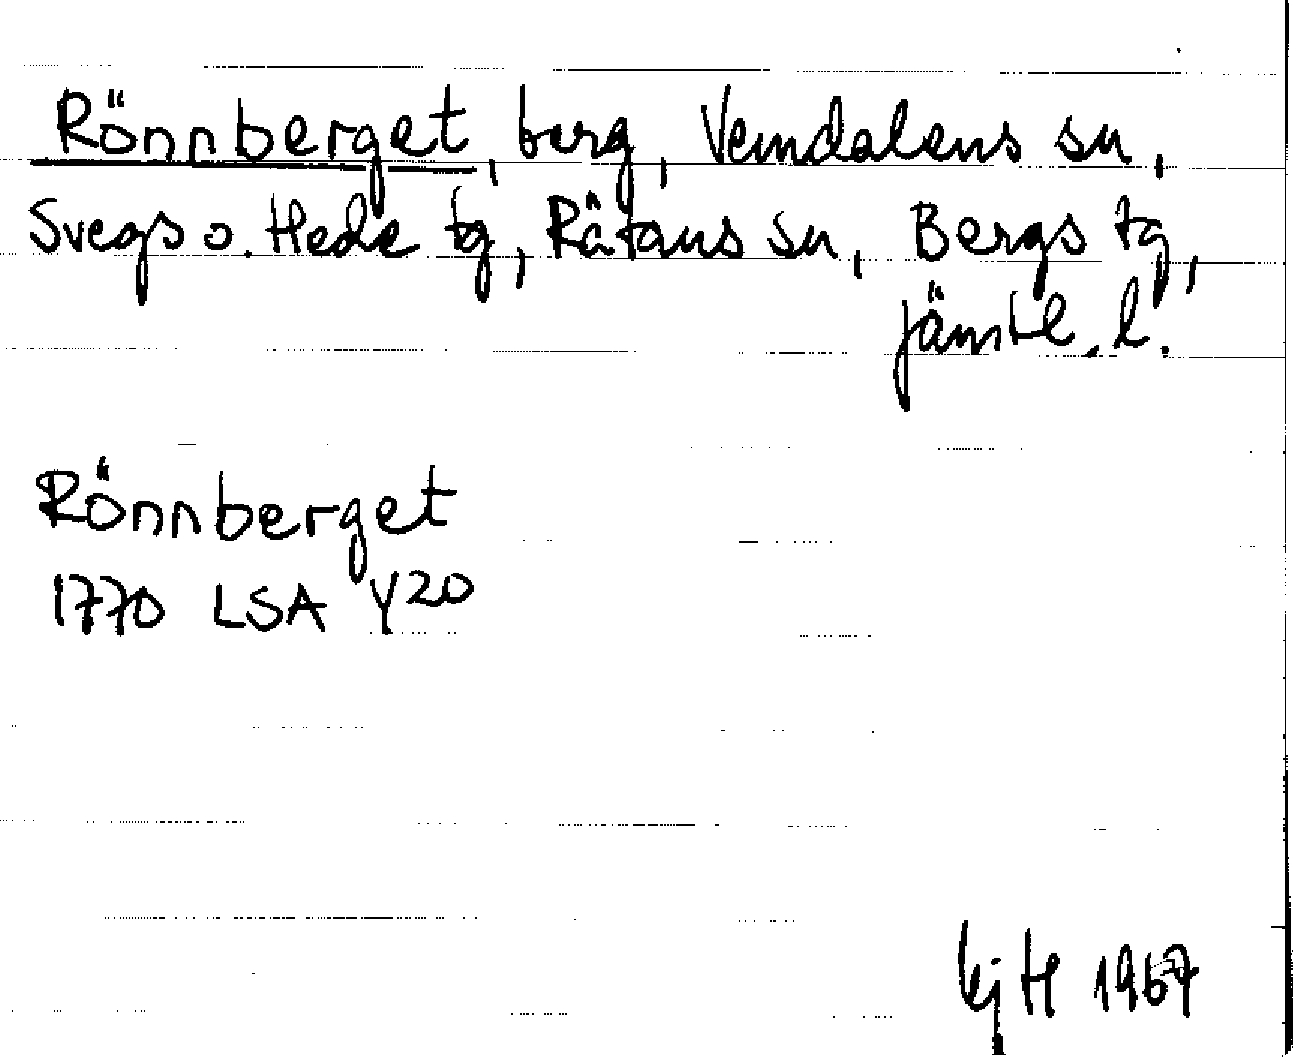 Rönnberget, berg, Vemdalens sn,
Svegs o. Hede tg, Rätans sn, Bergs tg,
Jämtl. l.
Rönnberget
1770 LSA Y20
1967